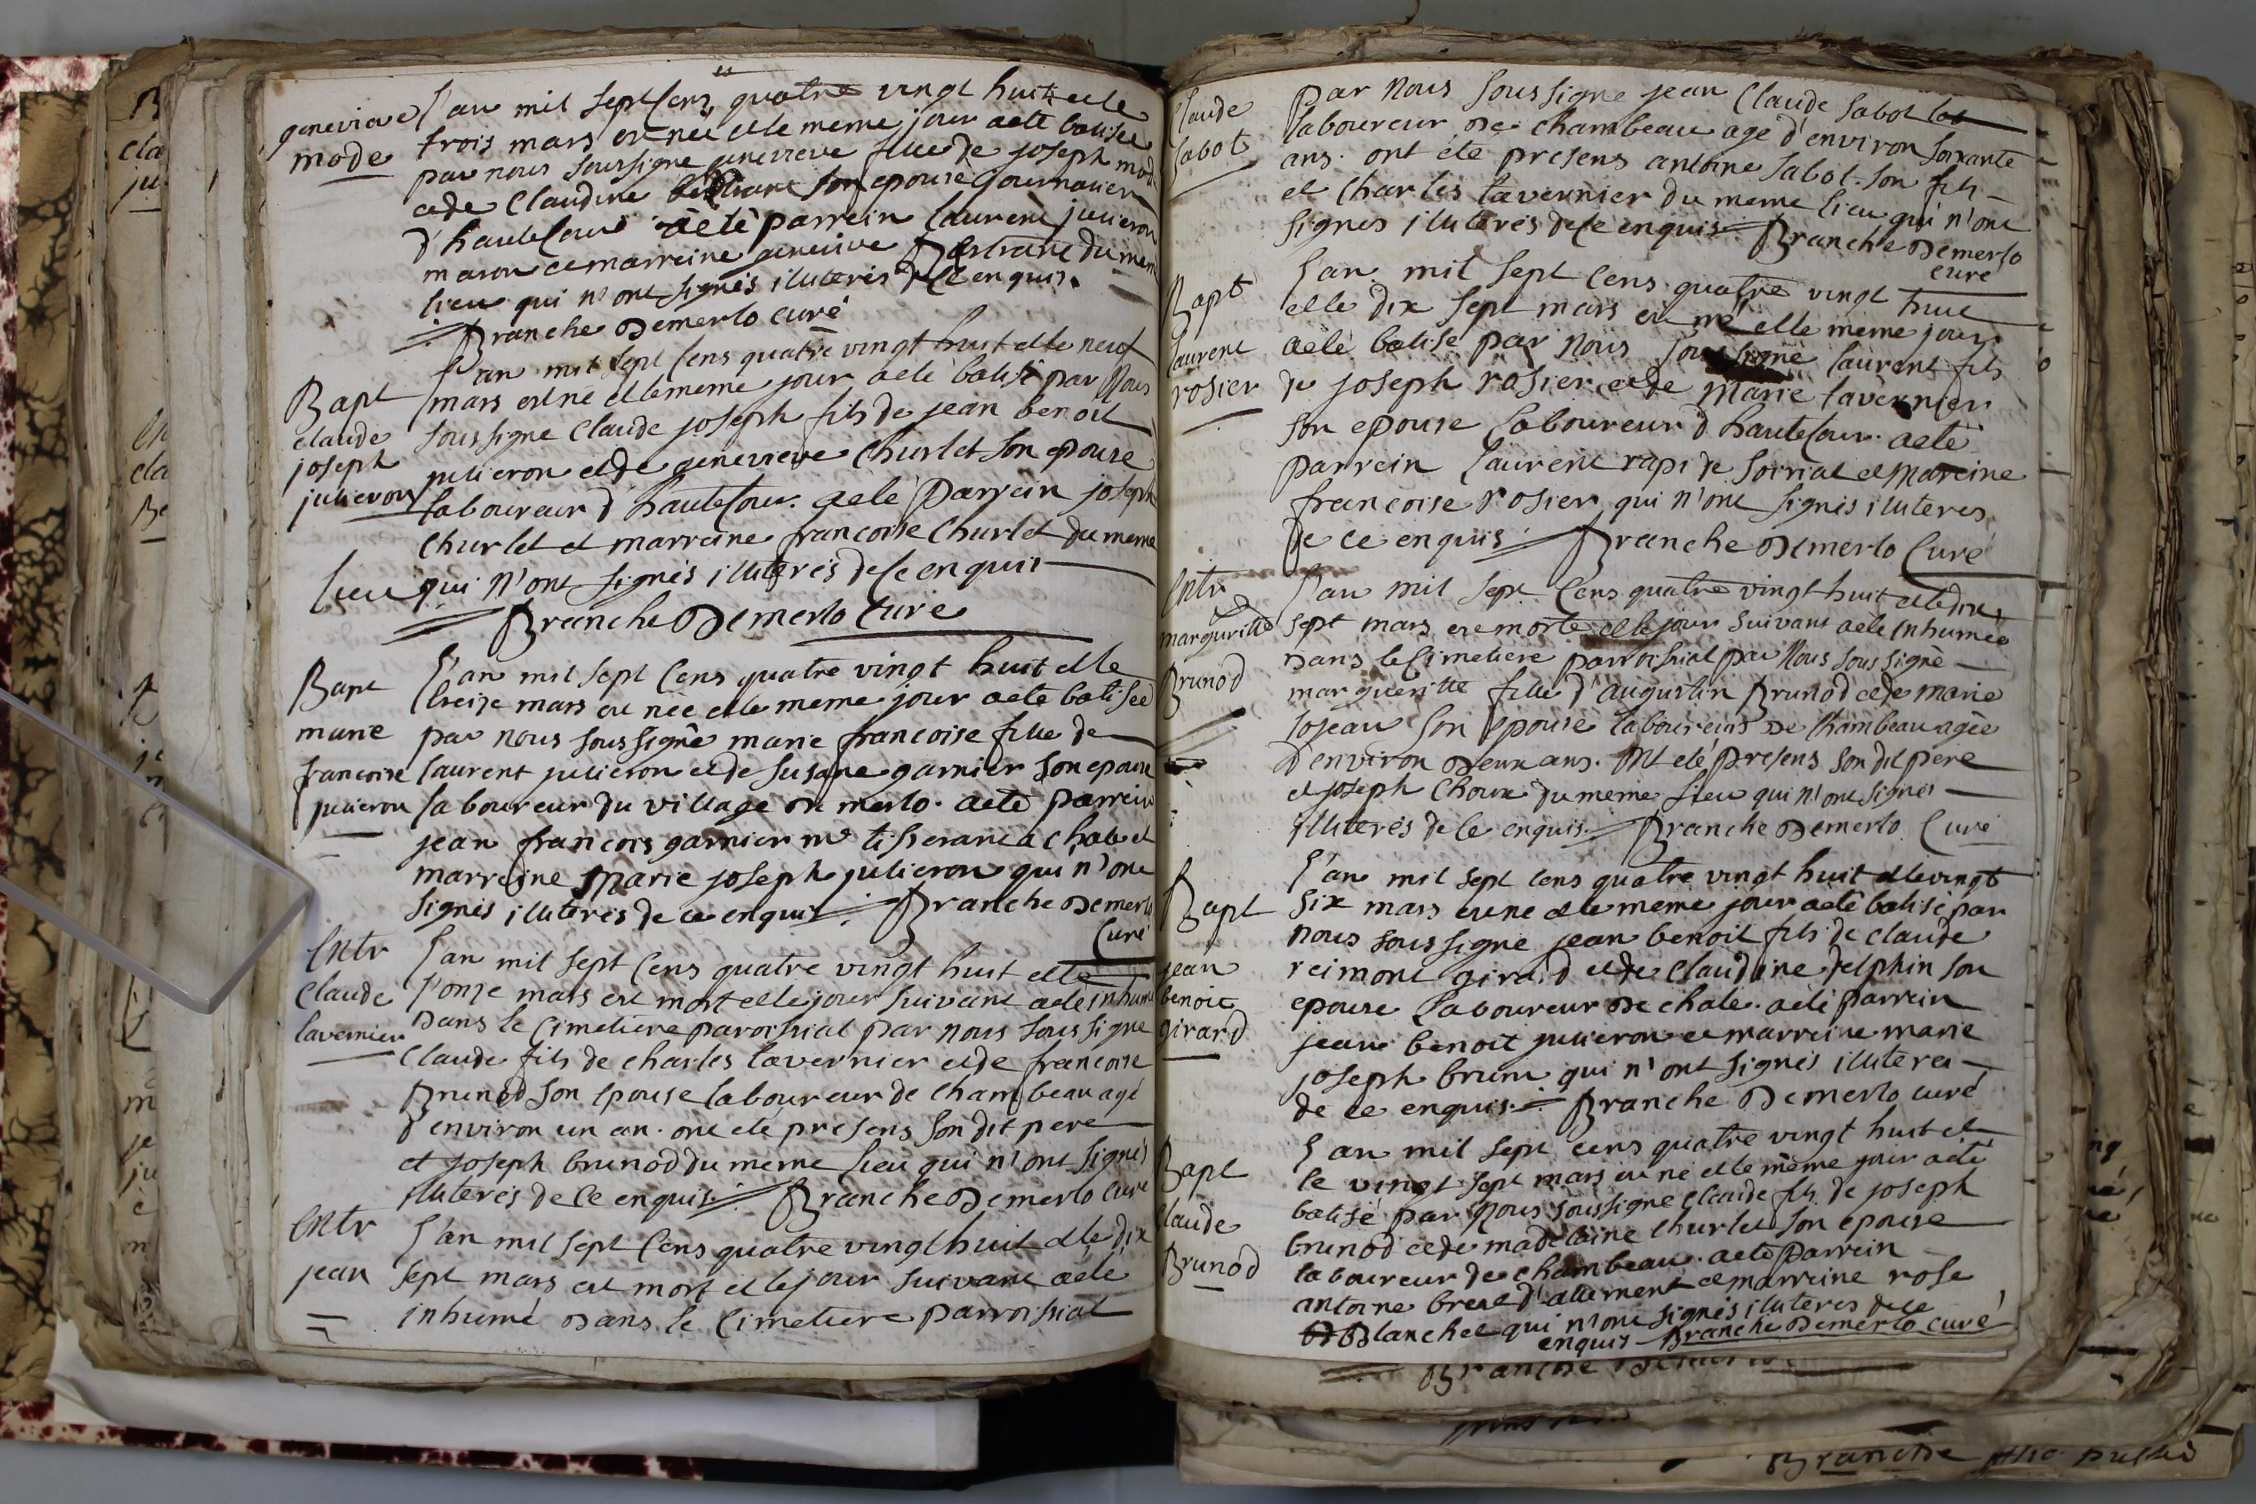 genevieve
mode
L'an mil sept Cens quatre vingt huit et le
trois mars est née et le meme jour a eté batisée
par nous soussigné genevieve fille de joseph mode
et de Claudine son epouse journalier
d'hautecour a eté parrein laurent julieron
mason et marreine genevieve du meme
lieu qui n'ont signés illiterés de ce enquis.
Branche Demerlo curé
Bapt
claude
joseph
julieron
L'an mil sept Cens quatre vingt huit et le neuf
mars est né et le meme jour a eté batisé par Nous
soussigné Claude joseph fils de jean benoit
julieron et de genevieve Churlet son epouse
laboureur d'hautecour. a eté Parrein joseph
Churlet et marreine francoise Churlet du meme
lieu qui n'ont signés illiterés de ce enquis
Branche Demerlo Curé
Bapt
marie
francoise
julieron
L'an mil sept Cens quatre vingt huit et le
treize mars est née et le meme jour a eté batisée
par nous soussigné marie francoise fille de
laurent julieron et de susane garnier son epouse
laboureur du village de merlo. a eté parrein
jean francois garnier me tisserant a chale et
marreine Marie joseph julieron qui n'ont
signés illiterés de ce enquis Branche Demerlo
Curé
Entr
Claude
tavernier
L'an mil sept Cens quatre vingt huit et le
onze mars est mort et le jour suivant a eté inhumé
Dans le Cimetiere paroissial par nous soussigné
Claude fils de charles tavernier et de francoise
Brunod son epouse laboureur de chambeau agé
d'environ un an. ont eté presens son dit pere
et joseph brunod du meme lieu qui n'ont signés
illiterés de ce enquis. Branche Demerlo curé
Entr
jean
L'an mil sept Cens quatre vingt huit et le dix
sept mars est mort et le jour suivant a eté
inhumé Dans le Cimetiere parroissial
Claude
Sabot
Par Nous soussigné jean Claude Sabot
laboureur de chambeau agé d'environ soixante
ans. ont eté presens antoine Sabot son fils
et Charles tavernier du meme lieu qui n'ont
signés illiterés de ce enquis Branche Demerlo
curé
Bapt
laurent
rosier
L'an mil sept Cens quatre vingt huit
et le dix sept mars est né et le meme jour
a eté batisé par Nous soussigné laurent fils
de joseph rosier et de Marie tavernier
son epouse laboureur d'hautecour. a eté
parrein laurent rapi de et Marreine
francoise rosier qui n'ont signés illiterés
de ce enquis Branche Demerlo Curé
Entr
margueritte
Brunod
L'an mil sept Cens quatre vingt huit et le dix
sept mars est morte et le jour suivant a eté inhumée
Dans le Cimetiere parroissial par Nous soussigné
margueritte fille d'augustin Brunod et de marie
jojean son epouse laboureurs de chambeau agée
d'environ deux ans. ont eté presens son dit pere
et joseph Choux du meme lieu qui n'ont signés
illiterés de ce enquis. Branche Demerlo Curé
Bapt
jean
benoit
girard
L'an mil sept cens quatre vingt huit et le vingt
six mars est né et le meme jour a eté batisé par
nous soussigné jean benoit fils de claude
reimont girard et de claudine delphin son
epouse laboureur de chale. a eté parrein
jean benoit julieron et marreine marie
joseph brun qui n'ont signés illiterés
de ce enquis. Branche Demerlo curé
Bapt
Claude
Brunod
L'an mil sept cens quatre vingt huit et
le vingt sept mars est né et le même jour a eté
batisé par Nous soussigné Claude fils de joseph
brunod et de madelaine churlet son epouse
laboureur de chambeau. a eté Parrein
antoine d'allement et marreine rose
Blanchet qui n'ont signés illiterés de ce
enquis Branche Demerlo curé
Branche
Branche